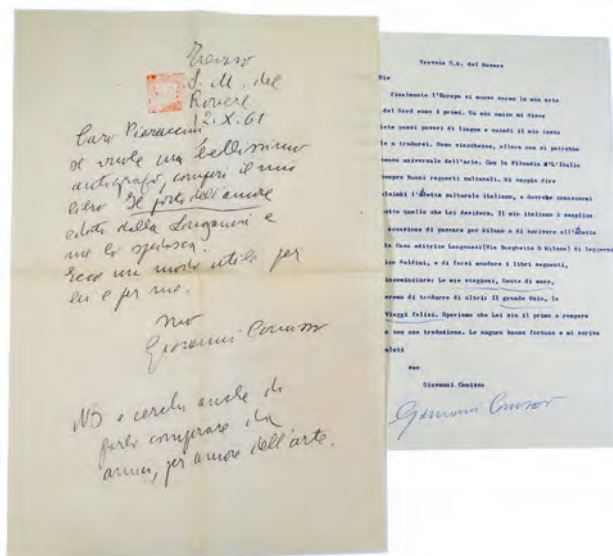 Treviso
S. M. del
Rovere
12.X.61
Caro Pieraccini
se vuole un bellissimo
autografo, comperi il mio
libro Il porto dell'amore
edito dalla Longanesi e
me lo spedisca.
Ecco un modo utile per
lei e per me.
suo
Giovanni Comisso
NB e cerchi anche di
farlo comprare da
amici, per amore dell'arte.
Treviso S.M. del Rovere
finalmente l'Europa si muove verso la mia arte
del Nord sono i primi. Un mio amico mi disse
poveri di lingua e quindi il mio testo
a tradursi. Sono sciocchezze, allora non si potrebbe
universale dell'arte. Con la Filandia l'Italia
sempre buoni rapporti culturali. Mi sappia dire
culturale italiano, e dovrebbe conoscermi
quello che Lei desidera. Il mio italiano è semplice
occasione di passare per Milano o di scrivere
la Casa editrice Longanesi(Via Borghetto 5 Milano) di leggermi
Naldini, e di farsi mandare i libri seguenti,
incominciare: Le mie stagioni, Gente di mare,
di tradurre di altri: Il grande Ozio, la
Viaggi felici. Speriamo che Lei sia il primo a rompere
con una traduzione. Le auguro buona fortuna e mi scriva
saluti
suo
Giovanni Comisso
Giovanni Comisso